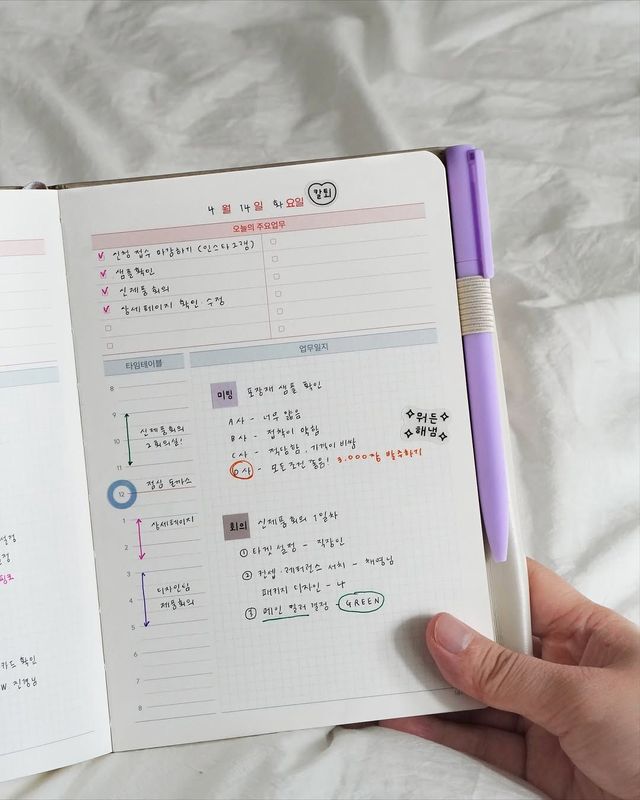 4 월 14 일 화 요일 칼퇴
오늘의 주요업무
신청 접수 마감하기 (인스타그램)
샘플확인
신제품 회의
상세페이지 확인 수정
타임테이블
8
9
신제품회의
2회의실!
10
11
점심 돈까스
12
1
상세페이지
2
3
디자인팀
제품회의
4
5
6
7
8
업무일지
미팅 포장재 샘플 확인
A사 - 너무 얇음
B사 - 접착이 약함
C사 - 적당함. 가격이 비쌈
D사 - 모든 조건 좋음! 3.000장 발주하기
뭐든
해냄
회의 신제품회의 1일차
① 타겟 설정 - 직장인
② 컨셉.레퍼런스 서치 - 채영님
패키지 디자인 - 나
③ 메인 컬러 결정 - GREEN
설정
핑크
카드 확인
W. 진경님